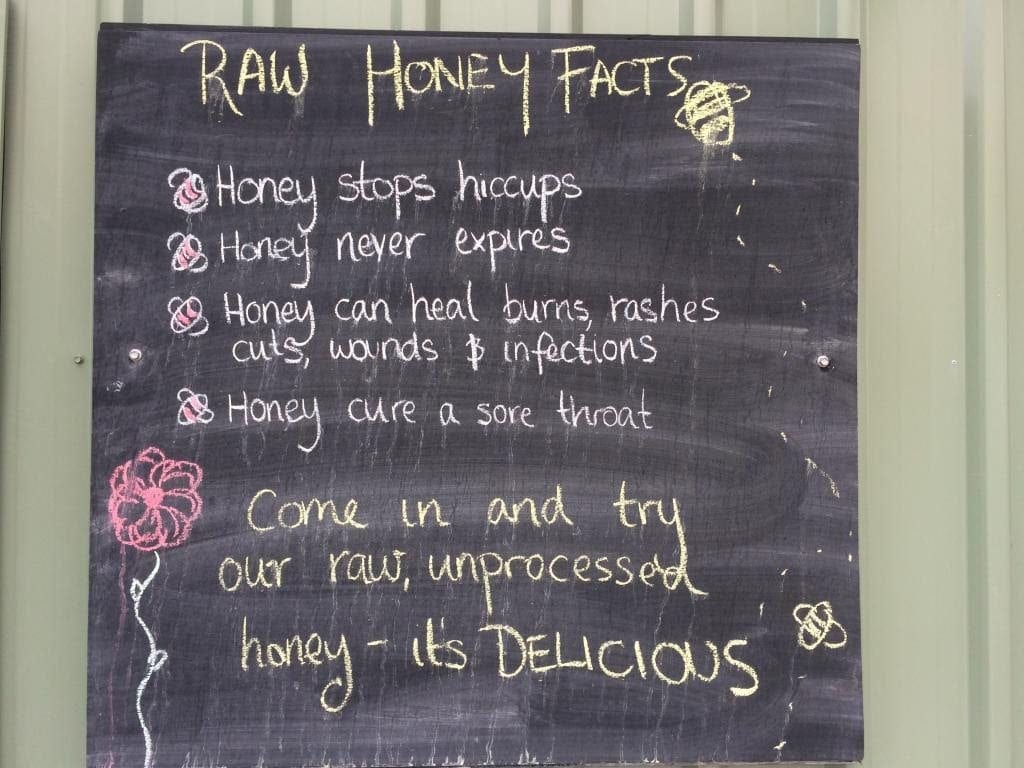 RAW HONEY FACTS
Honey stops hiccups
Honey never expires
Honey can heal burns, rashes
cuts, wounds & infections
Honey cure a sore throat
Come in and try
our raw, unprocessed
honey - it's DELICIOUS